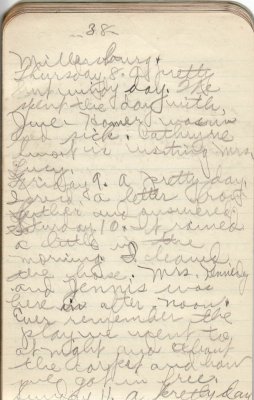 38-
Millersburg.
Thursday 8. A pretty
day. We
spent the day with
June. Homer was in
bed sick. Kathryne
went in Mrs.
Lucy.
Friday 9. A pretty day.
a letter from
and answered
Saturday 10. It rained
a little in the
morning. I cleaned
the house. Mrs. Kennedy
and Jennis was
here in after noon.
Ever remember the
play we went to
at night and about
the and how
we got in free.
Sunday 11. a pretty day